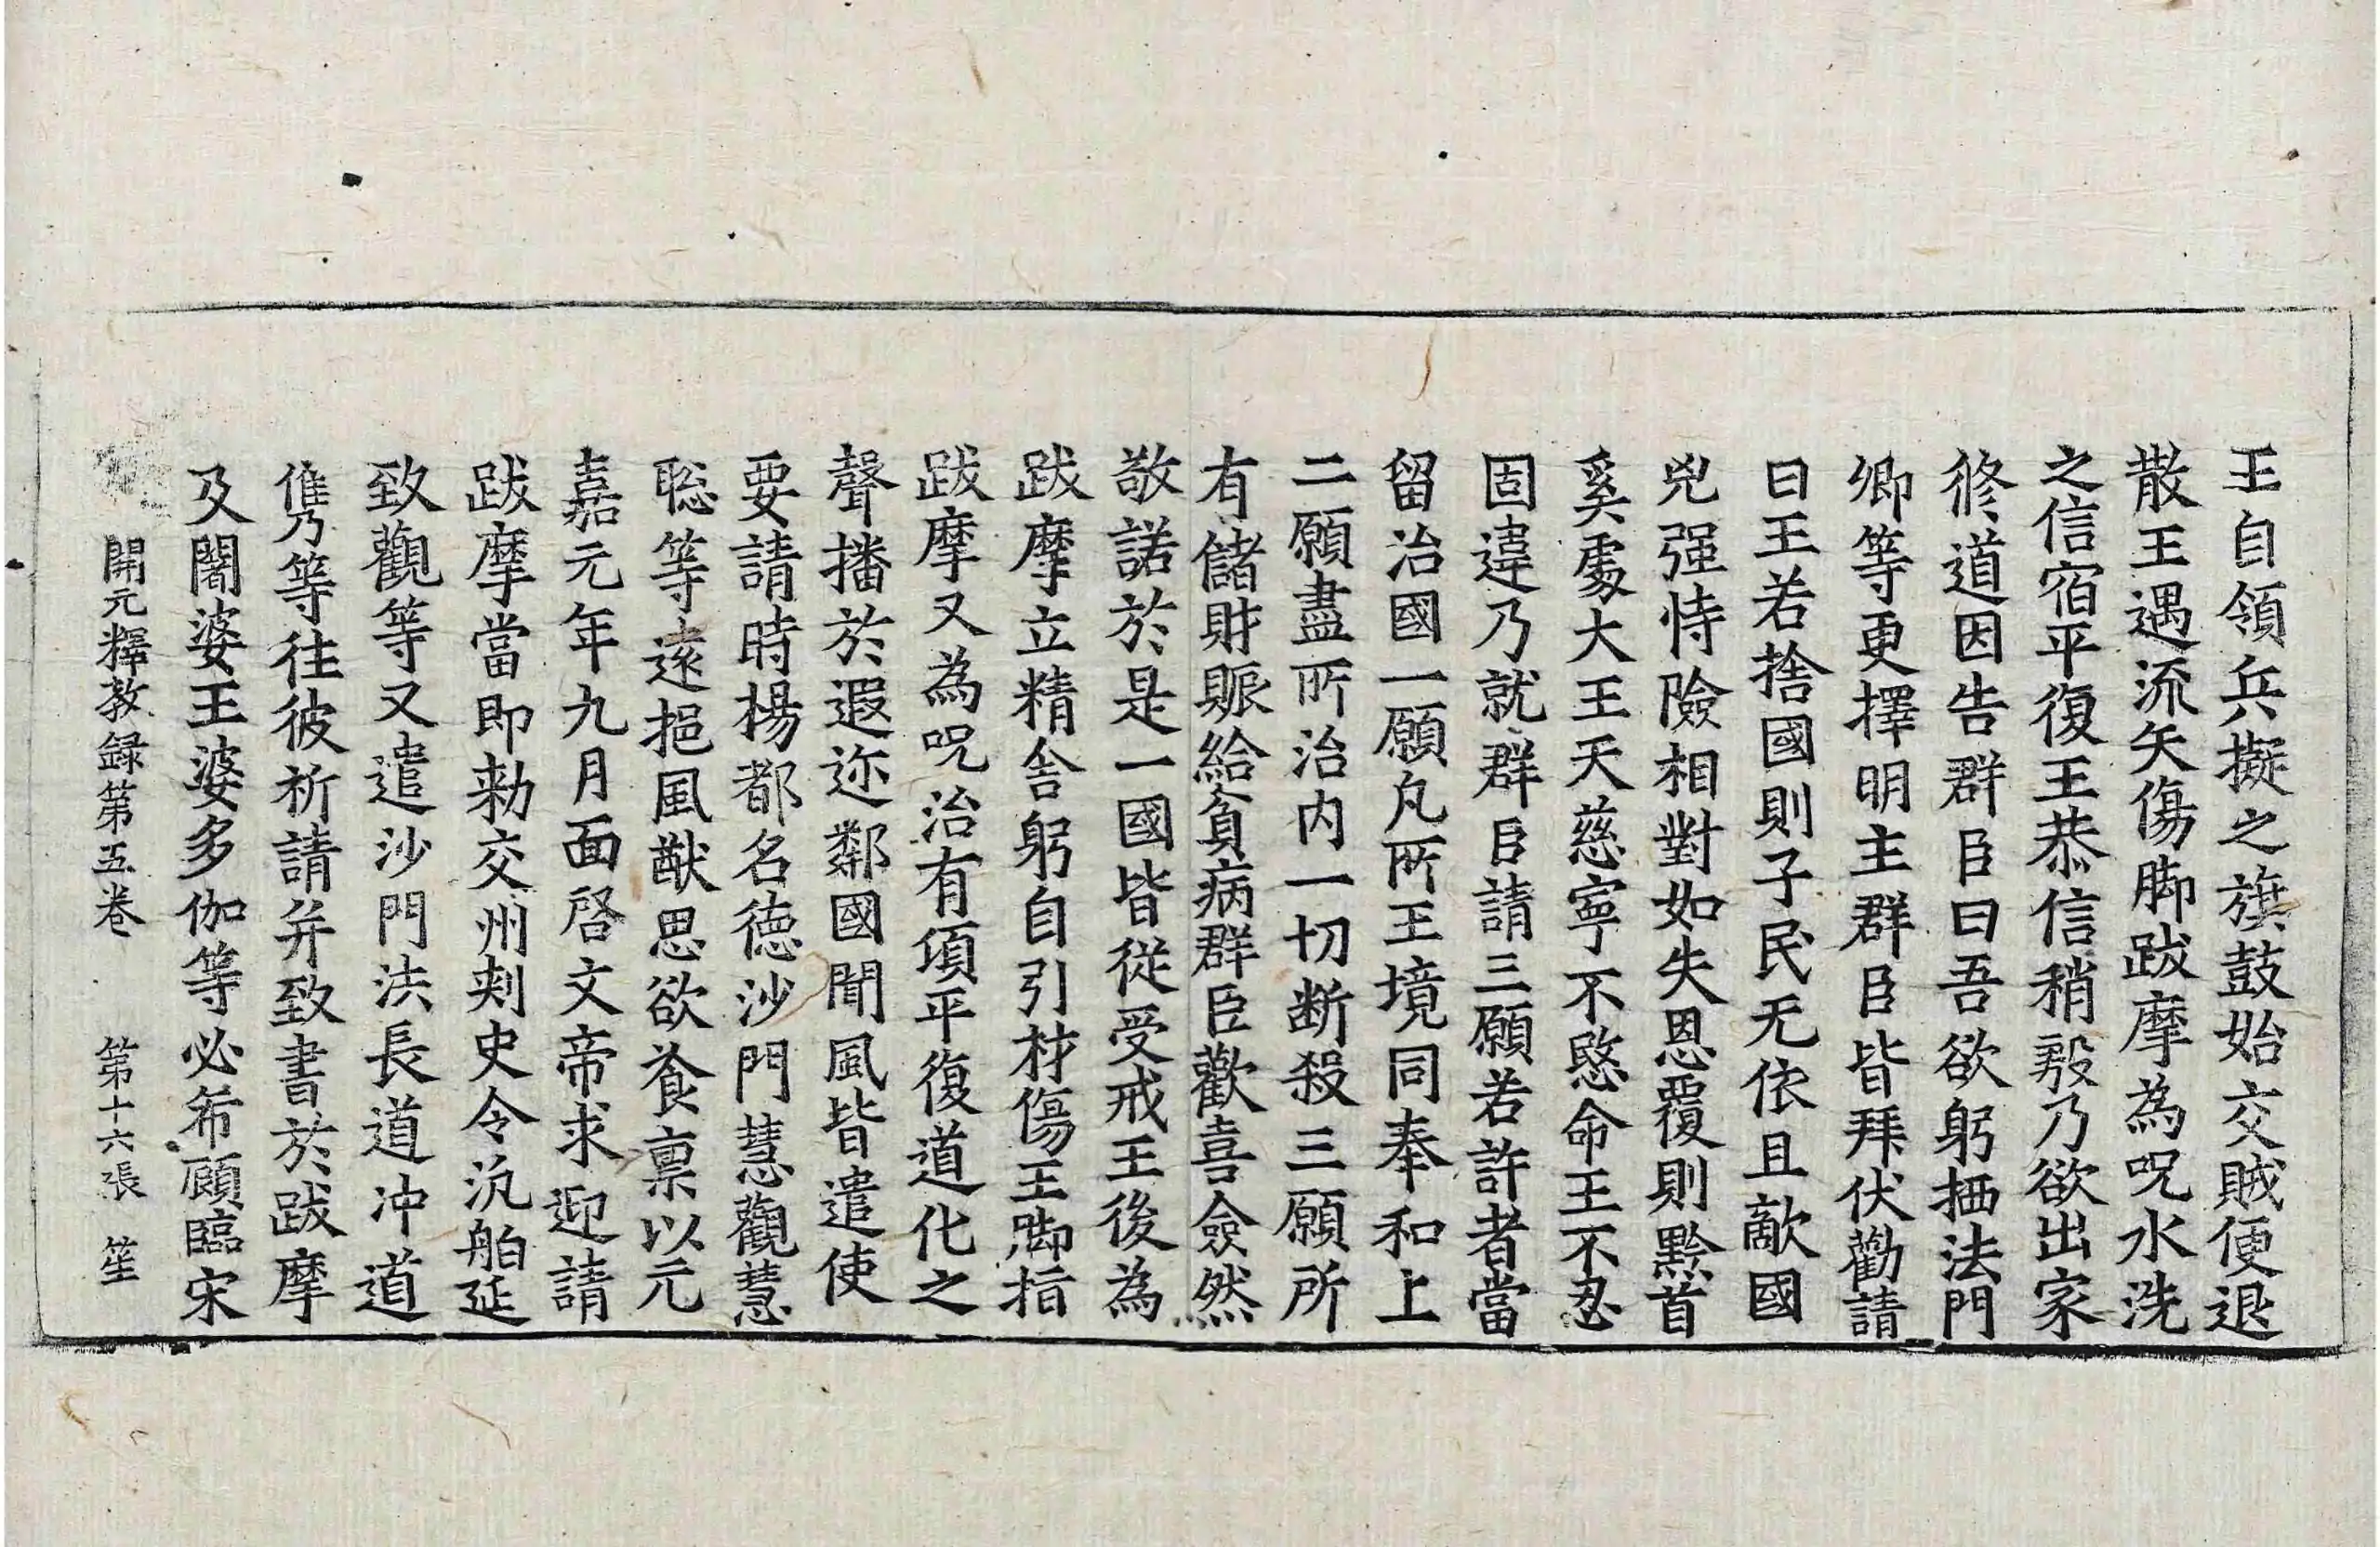 王自領兵擬之旗鼓始交賊便退
散王遇流矢傷脚跋摩為呪水洗
之信宿平復王恭信稍殷乃欲出家
修道因告群臣曰吾欲躬栖法門
卿等更擇明主群臣皆拜伏勸請
曰王若捨國則子民无依且敵國
兇强恃險相對如失恩覆則黔首
奚處大王天慈寧不愍命王不忍
固違乃就群臣請三願若許者當
留治國一願凡所王境同奉和上
二願盡所治内一切断殺三願所
有儲財賑給貧病群臣歡喜僉然
敬諾於是一國皆從受戒王後為
跋摩立精舍躬自引材傷王脚指
跋摩又為呪治有頃平復道化之
聲播於遐迩鄰國聞風皆遣使
要請時楊都名德沙門慧觀慧
聡等遠挹風猷思欲飡禀以元
嘉元年九月面啓文帝求迎請
跋摩當即勑交州刺史令汎舶延
致觀等又遣沙門法長道冲道
儁等往彼祈請并致書於跋摩
及闍婆王婆多伽等必希顧臨宋
開元釋教録第五卷 第十六張 笙